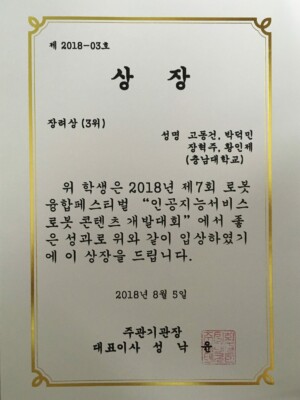 제 2018-03호
상 장
장려상 (3위)
성명 고동건, 박덕민
장혁주, 황인제
(충남대학교)
위 학생은 2018년 제7회 로봇
융합페스티벌 “인공지능서비스
로봇 콘텐츠 개발대회” 에서 좋
은 성과로 위와 같이 입상하였기
에 이 상장을 드립니다.
2018년 8월 5일
주관기관장
대표이사 성 낙 윤